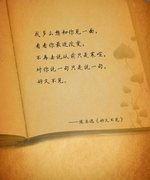 我多么想和你见一面,
看看你最近改变。
不再去说从前只是寒暄,
对你说一句只是说一句,
好久不见。
——陈奕迅《好久不见》